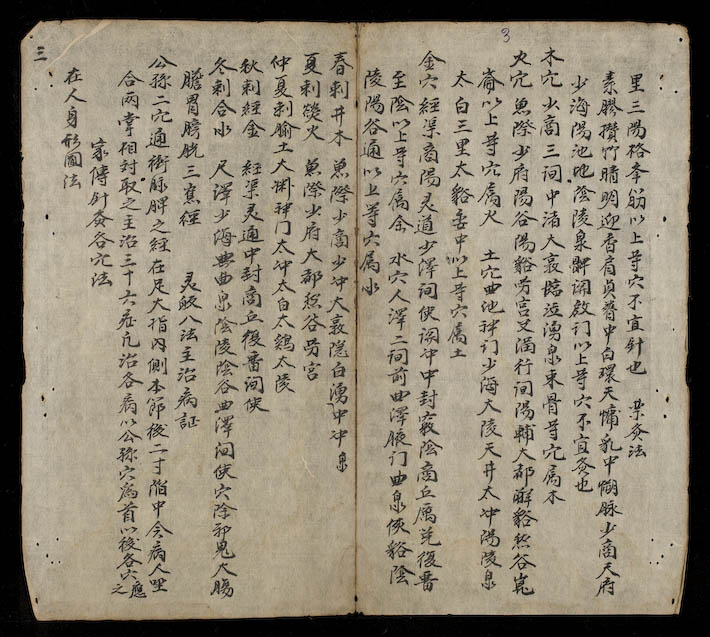 里三陽䅂奉筋以上等穴不宜針也 禁灸法
素膠攢竹睛明迎香肩貞普中白環天慵乳中惻脉少商天府
少海陽池地陰陵泉髀関啟门以上等穴不宜灸也
木穴少商三间中渚大衰臨泣湧泉束骨等穴属木
火穴魚際少府陽谷陽谿労宫支溝行间陽輔大都觧谿然谷崑
崙以上等穴属火 土穴曲池神门少海大陵天井太冲陽陵泉
太白三里太谿委中以上等穴属土
金穴經渠商陽灵道少澤间使関冲中封竅陰商丘厲兌復畱
至陰以上等穴属金 水穴人澤二间前曲澤腋门曲泉侠谿陰
陵陽谷通以上等穴属水
春刺井木 魚際少商少冲大衰隐白湧中冲泉
夏刺熒火 魚際少府大都然谷労宫
仲夏刺腧土大渊神门太冲太白太鷄太陵
秋刺經金 經渠灵通中封商丘復畱间使
冬刺合水 尺澤少海典曲泉陰陵陰谷曲澤间使穴除邪鬼大腸
膽胃膀胱三焦經 灵皎八法主治病証
公孫二穴通衝脉脾之經在足大指内側本節後二寸陷中令病人坐
合两掌相対取之主治三十六症凢治各病以公孫穴為首以後各穴應之
家傳針灸各穴法
在人身形圖法
三
3